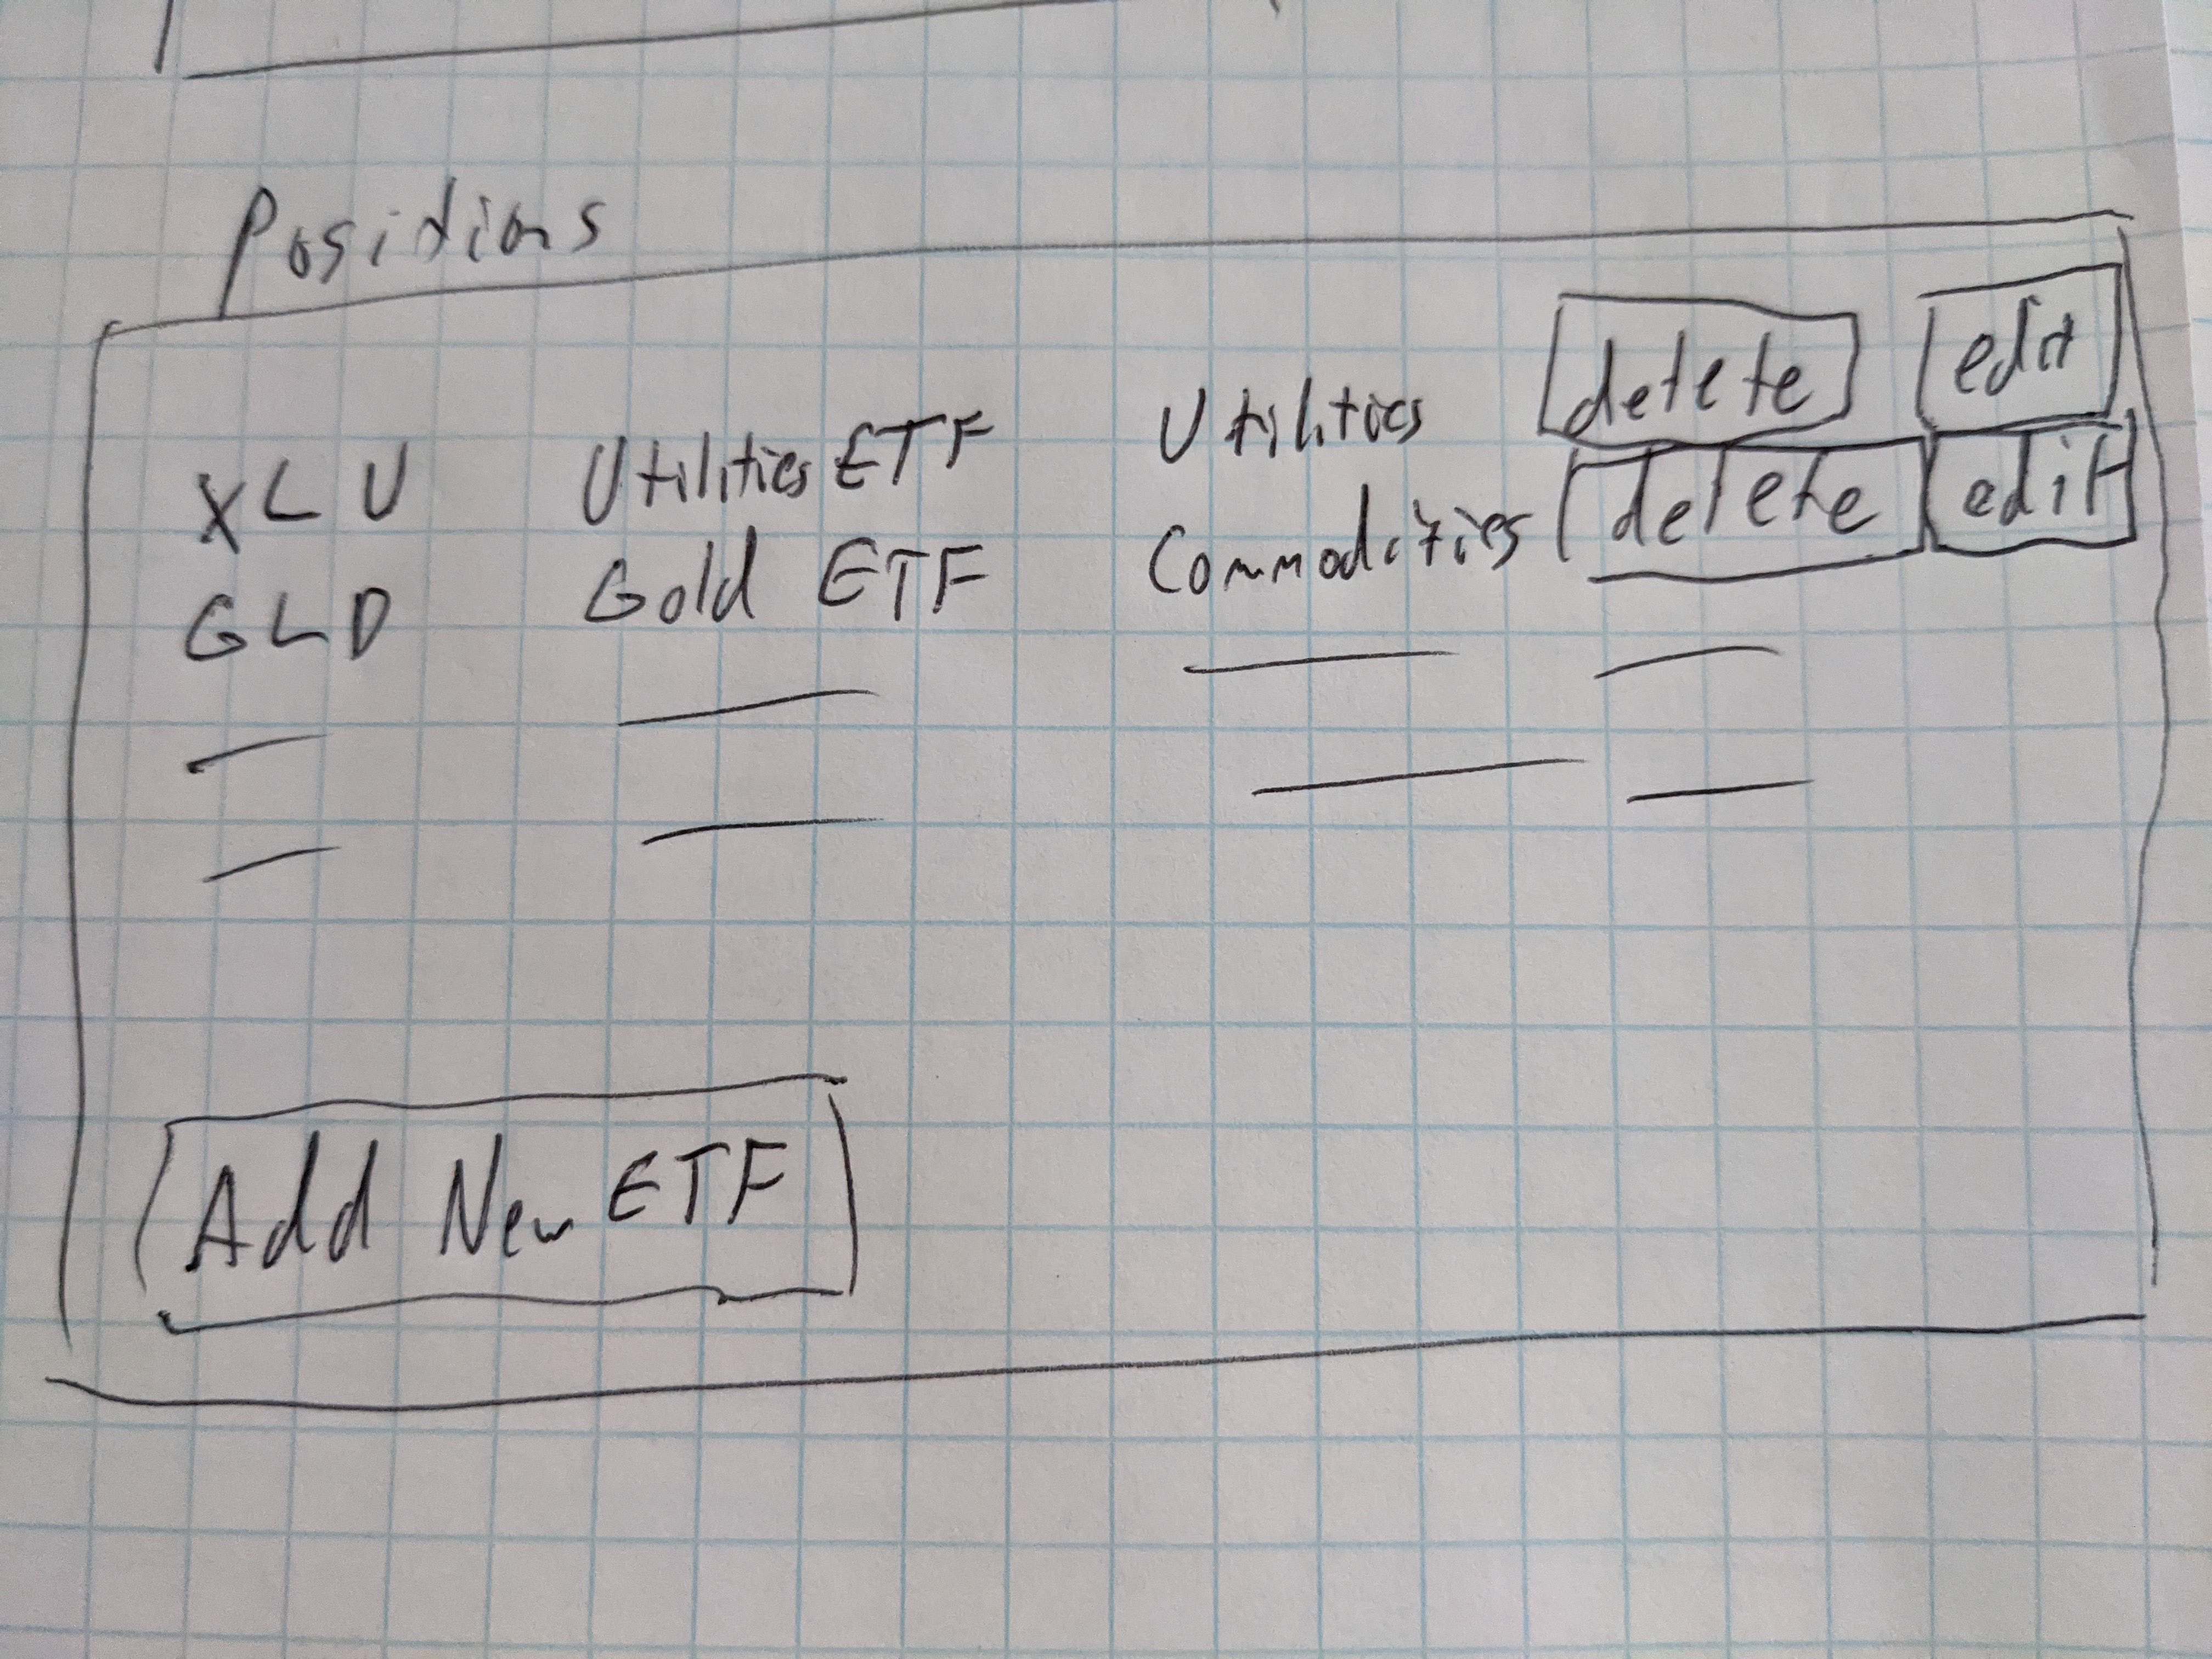 Positions
XLU Utilities ETF Utilities delete edit
GLD Gold ETF Commodities delete edit
Add New ETF